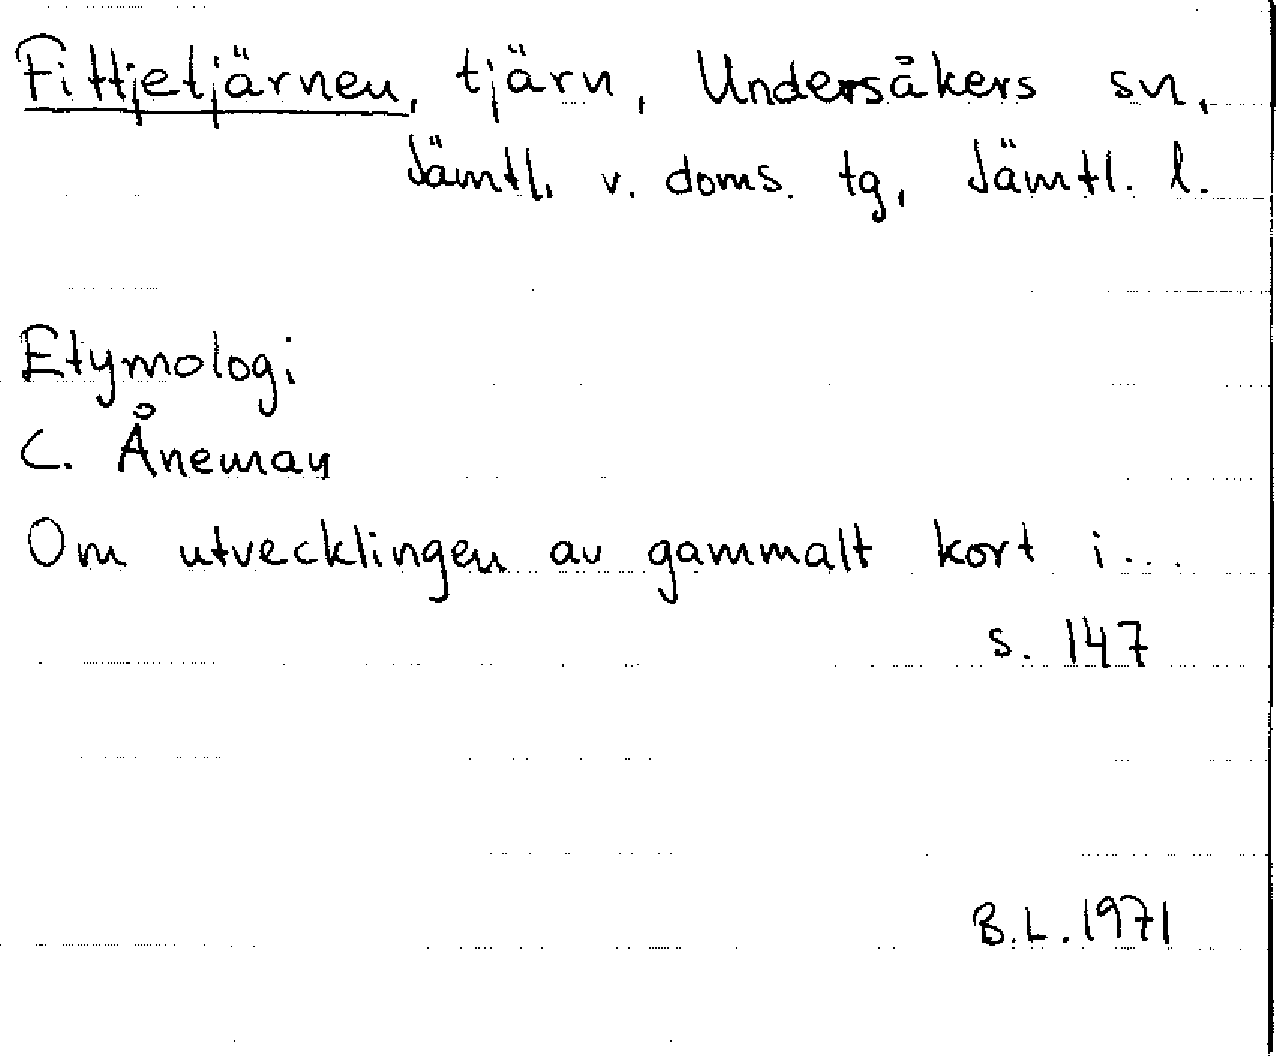 Fittjetjärnen, tjärn, Undersåkers sn,
Jämtl. v. doms. tg, Jämtl. l.
Etymologi
C. Åneman
Om utvecklingen av gammalt kort i...
s. 147
B.L. 1971